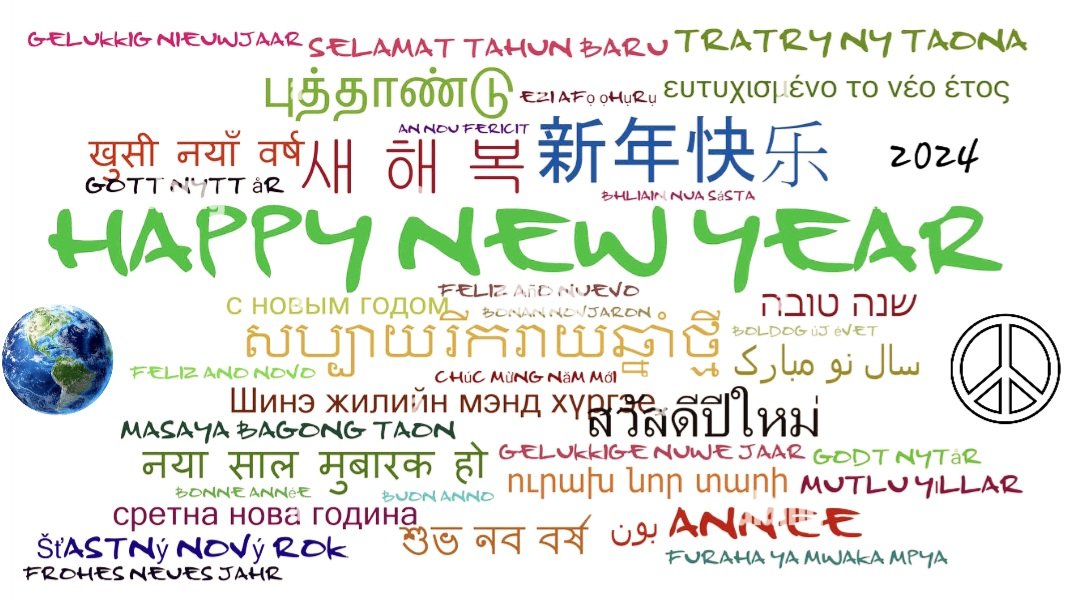 GELUKKIG NIEUWJAAR
SELAMAT TAHUN BARU
TRATRY NY TAONA
புத்தாண்டு
EZI AFỌ ỌHỤRỤ
ευτυχισμένο το νέο έτος
AN NOU FERICIT
खुसी नयाँ वर्ष
새 해 복
新年快乐
2024
GOTT NYTT åR
BHLIAIN NUA SáSTA
HAPPY NEW YEAR
FELIZ AñO NUEVO
с новым годом
BONAN NOVJARON
שנה טובה
សប្បាយរីករាយឆ្នាំថ្មី
BOLDOG úJ éVET
سال نو مبارک
FELIZ ANO NOVO
CHúC MừNG NăM MớI
Шинэ жилийн мэнд хүргэе
สวัสดีปีใหม่
MASAYA BAGONG TAON
नया साल मुबारक हो
GELUKKIGE NUWE JAAR
GODT NYTåR
BONNE ANNéE
BUON ANNO
ուրախ նոր տարի
MUTLU YILLAR
сретна нова година
शुभ नव वर्ष
بون ANNEE
ŠťASTNý NOVý ROK
FURAHA YA MWAKA MPYA
FROHES NEUES JAHR